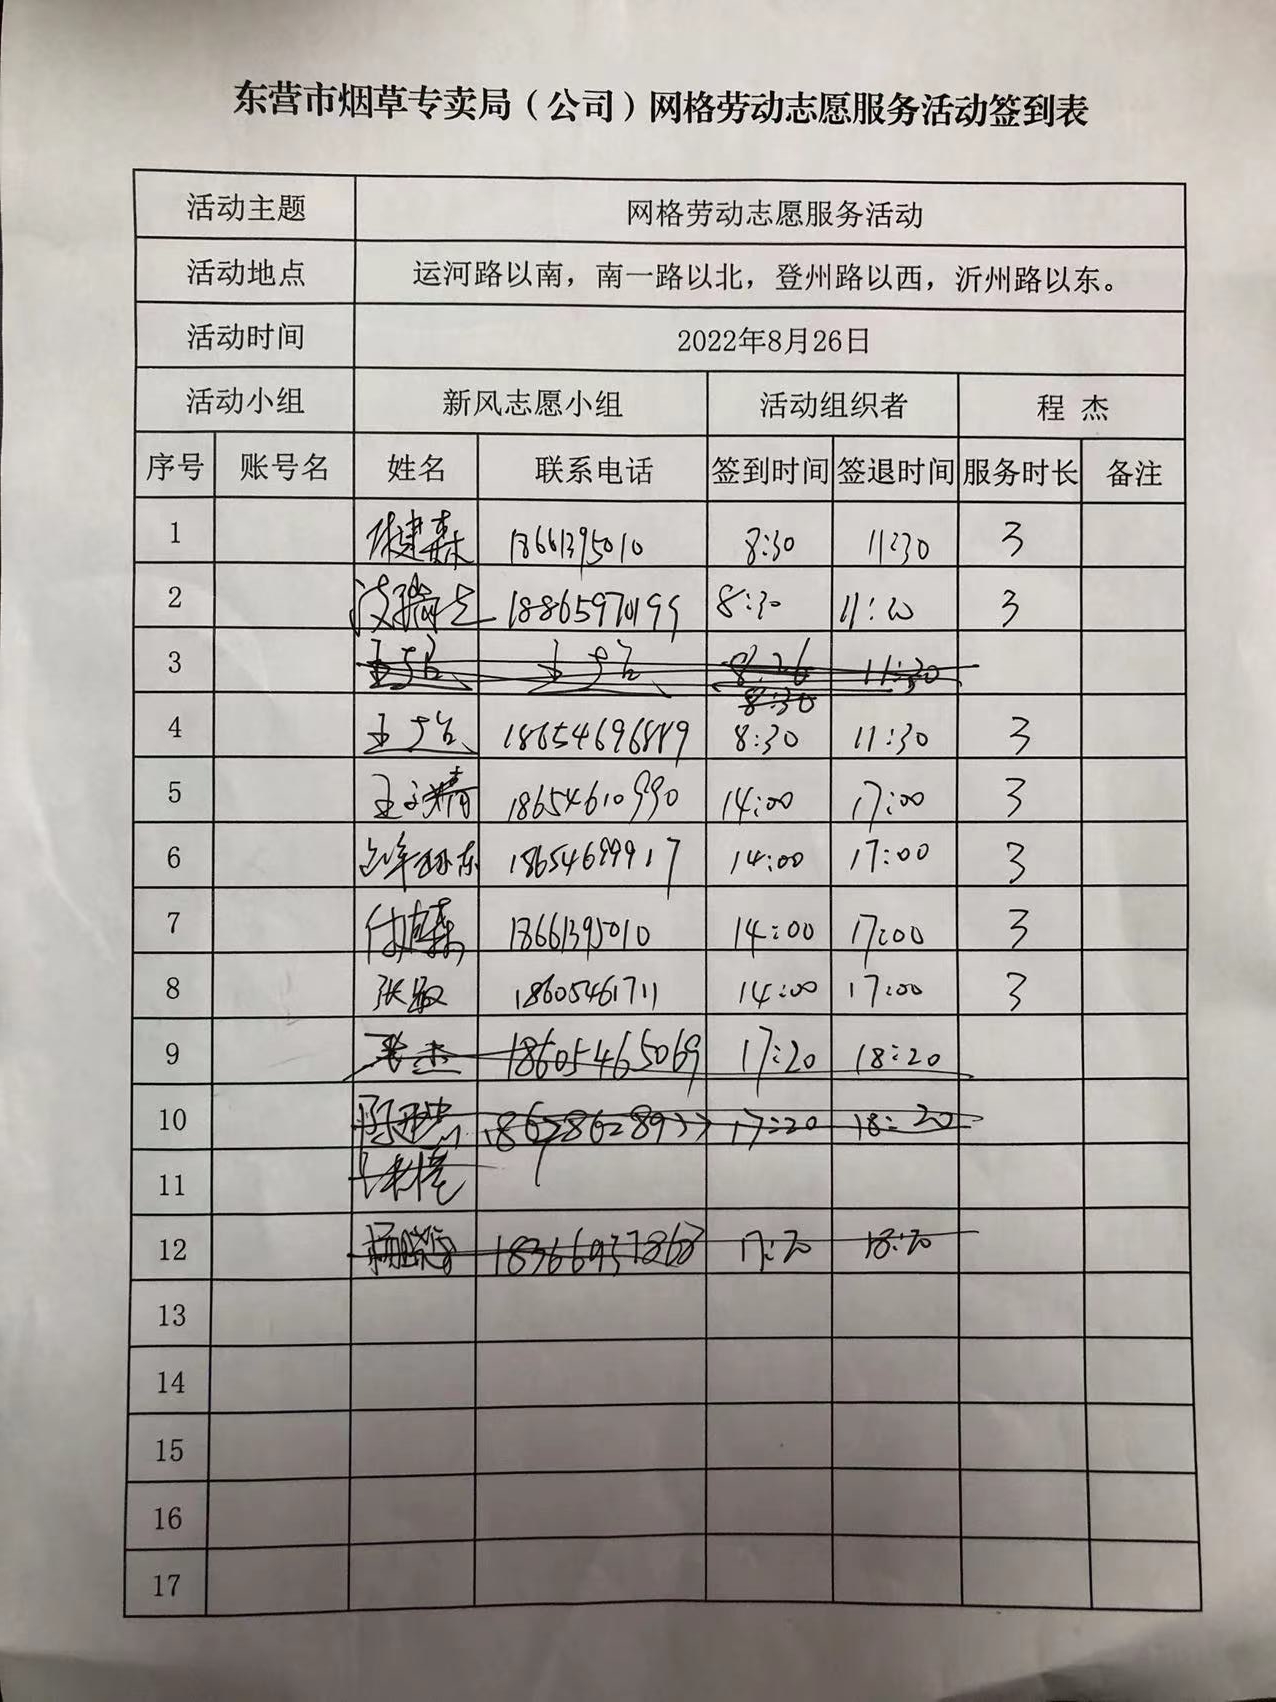 东营市烟草专卖局（公司）网格劳动志愿服务活动签到表
活动主题 网格劳动志愿服务活动
活动地点 运河路以南，南一路以北，登州路以西，沂州路以东。
活动时间 2022年8月26日
活动小组 新风志愿小组 活动组织者 程 杰
序号 账号名 姓名 联系电话 签到时间 签退时间 服务时长 备注
1 18661395010 8:30 11:30 3
2 18865970199 8:30 3
3 11:30
8:30
4 8:30 11:30 3
5 18654610990 14:00 17:00 3
6 18654699917 14:00 17:00 3
7 付建森 18661395010 14:00 17:00 3
8 张敏 18605461711 14:00 17:00 3
9 18605465069 17:20 18:20
10 17:20 18:20
11
12 17:20 18:20
13
14
15
16
17